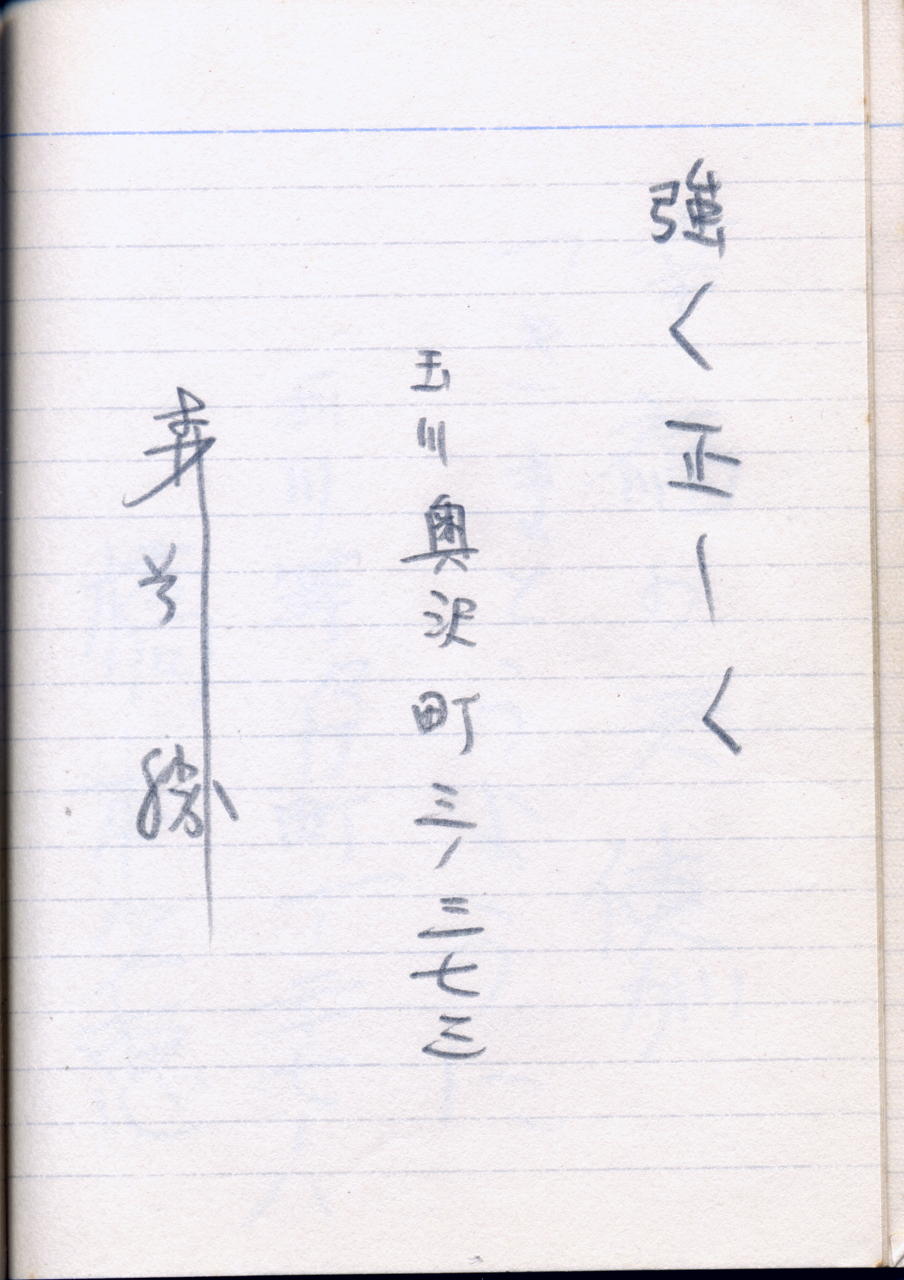 強く正しく
玉川奥沢町三ノ三七三